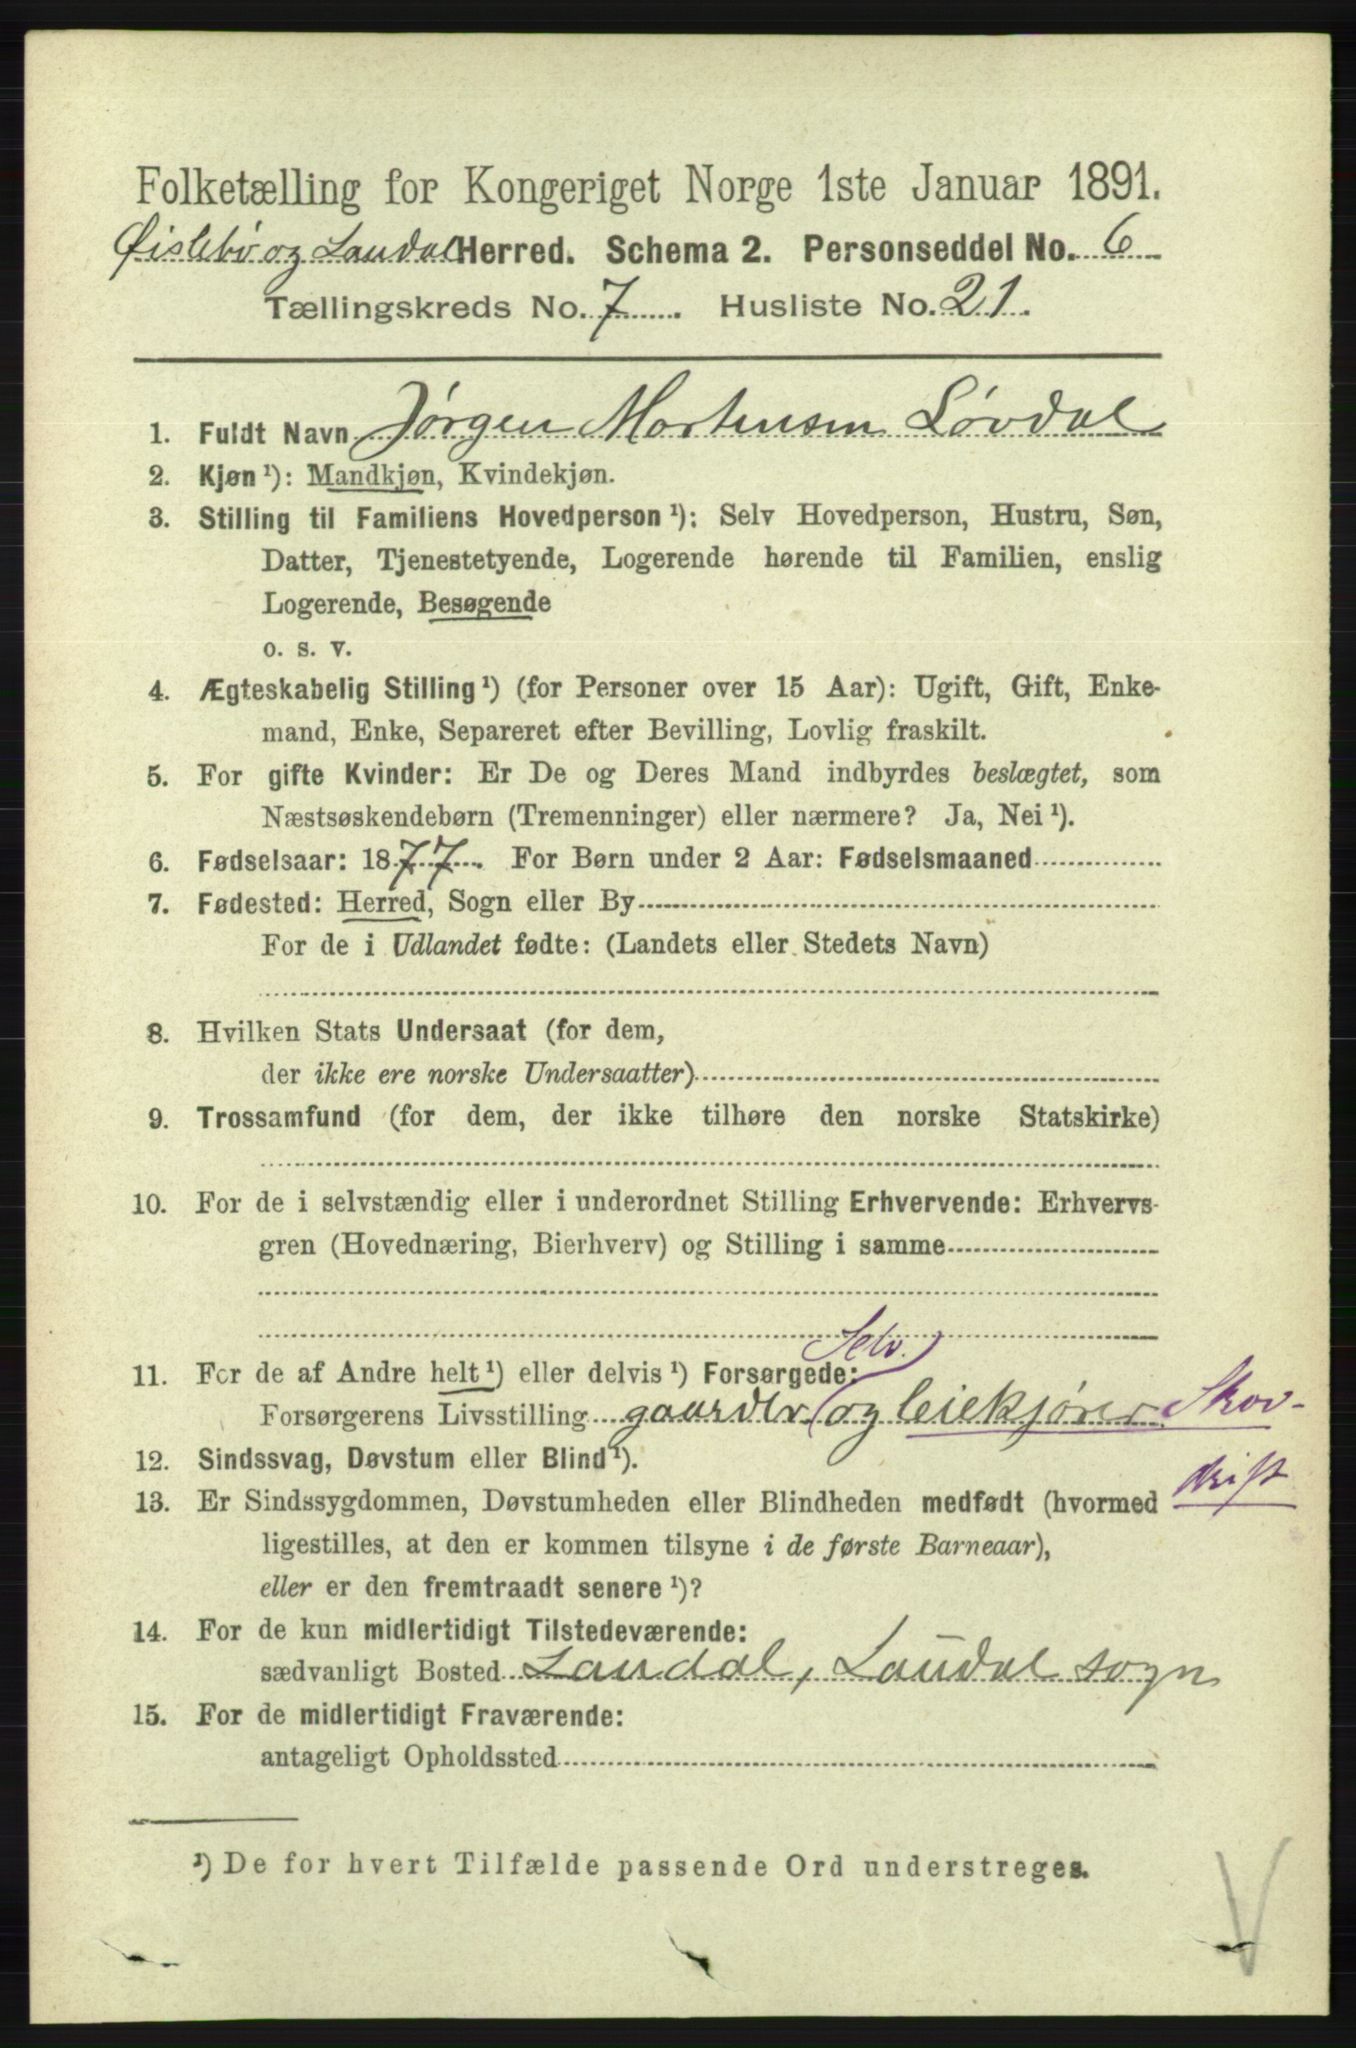 Folketælling for Kongeriget Norge 1ste Januar 1891.
Øislebø og Laudal Herred. Schema 2. Personseddel No. 6
Tællingskreds No. 7. Husliste No. 21.
1. Fuldt Navn Jørgen Mortensen Løvdal
2. Kjøn ¹): Mandkjøn, Kvindekjøn.
3. Stilling til Familiens Hovedperson ¹): Selv Hovedperson, Hustru, Søn,
Datter, Tjenestetyende, Logerende hørende til Familien, enslig
Logerende, Besøgende
o. s. v.
4. Ægteskabelig Stilling ¹) (for Personer over 15 Aar): Ugift, Gift, Enke-
mand, Enke, Separeret efter Bevilling, Lovlig fraskilt.
5. For gifte Kvinder: Er De og Deres Mand indbyrdes beslægtet, som
Næstsøskendebørn (Tremenninger) eller nærmere? Ja, Nei ¹).
6. Fødselsaar: 1877. For Børn under 2 Aar: Fødselsmaaned
7. Fødested: Herred, Sogn eller By
For de i Udlandet fødte: (Landets eller Stedets Navn)
8. Hvilken Stats Undersaat (for dem,
der ikke ere norske Undersaatter)
9. Trossamfund (for dem, der ikke tilhøre den norske Statskirke)
10. For de i selvstændig eller i underordnet Stilling Erhvervende: Erhvervs-
gren (Hovednæring, Bierhverv) og Stilling i samme
Selv.
11. For de af Andre helt ¹) eller delvis ¹) Forsørgede:
Forsørgerens Livsstilling gaardbr. (og leiekjører) Skov-
drift
12. Sindssvag, Døvstum eller Blind ¹).
13. Er Sindssygdommen, Døvstumheden eller Blindheden medfødt (hvormed
ligestilles, at den er kommen tilsyne i de første Barneaar),
eller er den fremtraadt senere ¹)?
14. For de kun midlertidigt Tilstedeværende:
sædvanligt Bosted Laudal, Laudal sogn
15. For de midlertidigt Fraværende:
antageligt Opholdssted
¹) De for hvert Tilfælde passende Ord understreges.
V